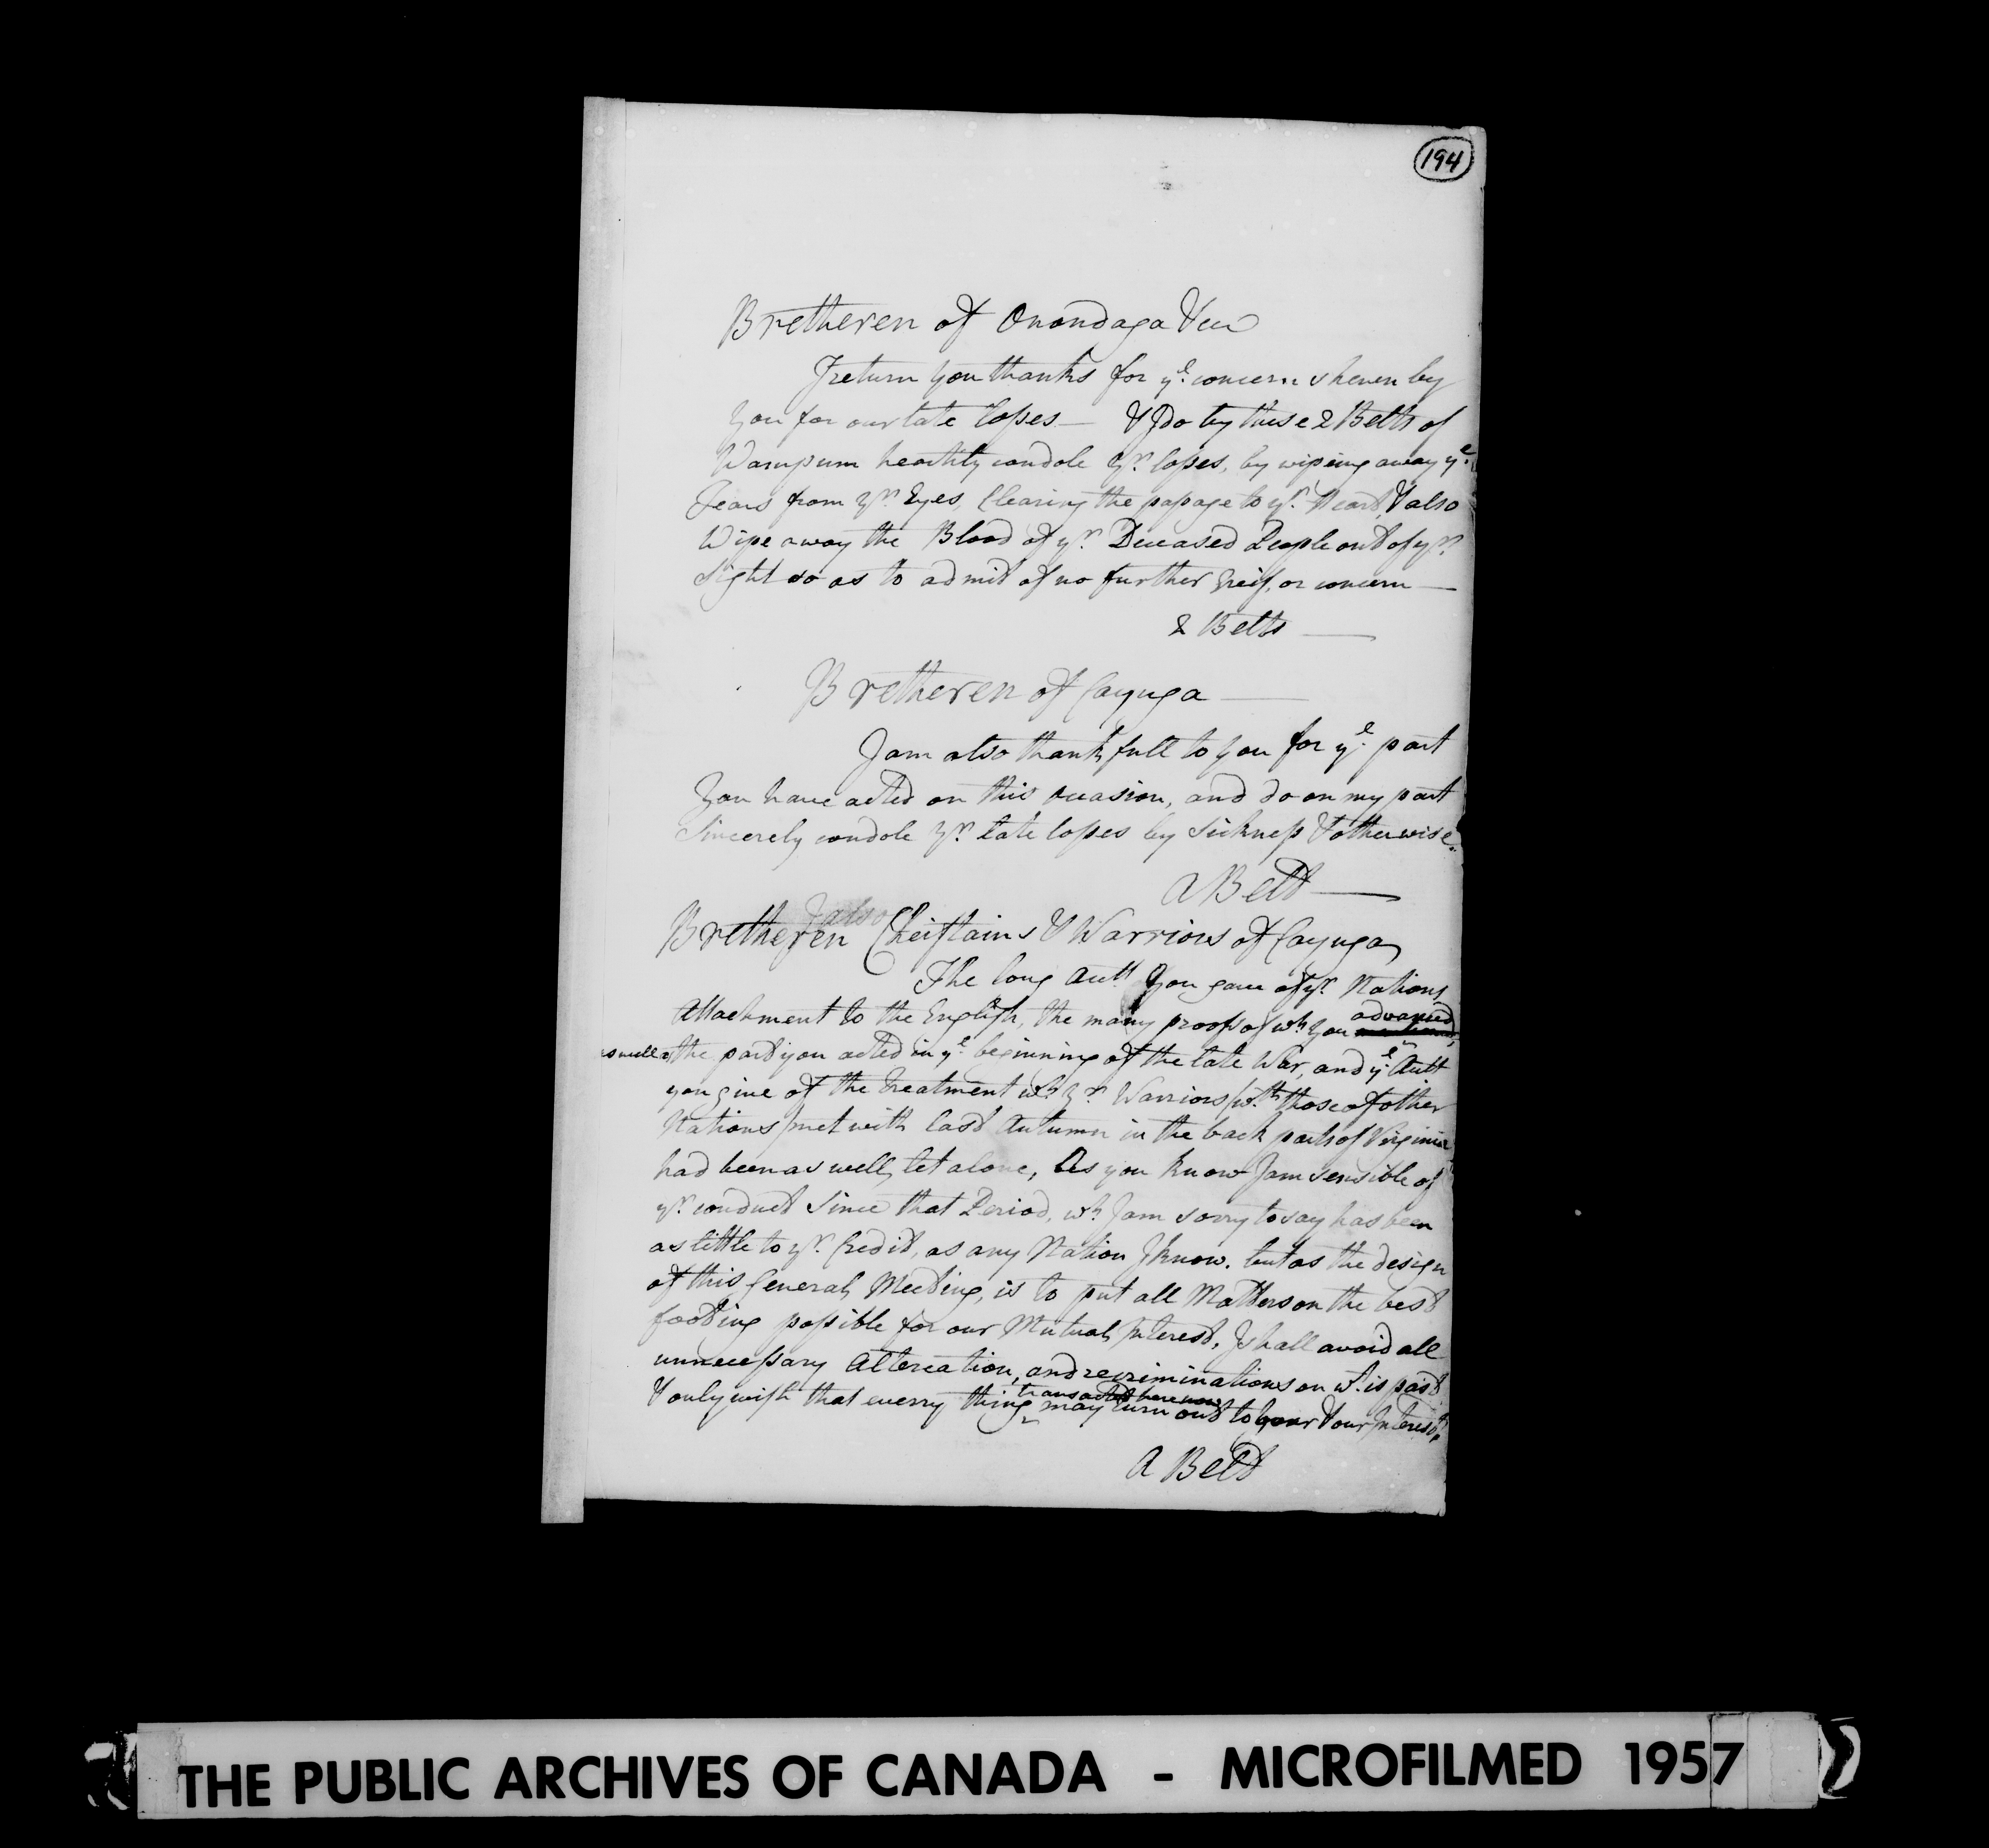 194
Bretheren of Onondaga &ca
I return you thanks for ye. concern shewn by
you for our late losses — & I do by these 2 Belts of
Wampum heartily condole yr. losses, by wipeing away ye.
Tears from yr. Eyes, Clearing the passage to yr. Heart, & also
Wipe away the Blood of yr. Deceased People out of yr.
sight so as to admit of no further Greif, or concern —
2 Belts —
Bretheren of Cayuga —
I am also thankfull to you for ye. part
You have acted on this occasion, and do on my part
Sincerely condole yr. late losses by sickness & otherwise.
A Belt —
I also
Bretheren Cheiftains & Warriors of Cayuga,
The long Acctt. You gave of yr. Nations
advanced
Attachment to the English, the many proofs of wh. you
as well as the part you acted in ye. beginning of the late War, and ye. Acctt
you give of the Treatment wh. yr. Warriors (wth. those of other
Nations) met with last Autumn in the back parts of Virginia
had been as well, let alone, As you know I am sensible of
yr. conduct since that Period, wh. I am sorry to say has been
as little to yr. Credit, as any Nation I know. but as the design
of this General Meeting, is to put all Matters on the best
footing possible for our Mutual Interest, I shall avoid all
unnecessary Altercation, and recriminations on wt. is past
transacted here now
& only wish that every thing may turn out to your & our Interest.
A Belt
THE PUBLIC ARCHIVES OF CANADA - MICROFILMED 1957